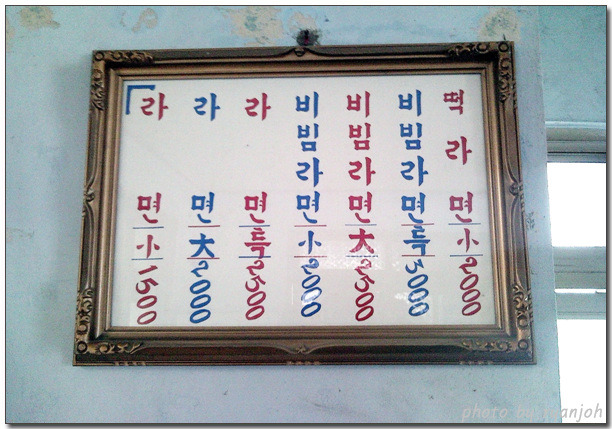 라면 小 1500
라면 大 2000
라면 특 2500
비빔라면 小 2000
비빔라면 大 2500
비빔라면 특 3000
떡라면 小 2000
photo by